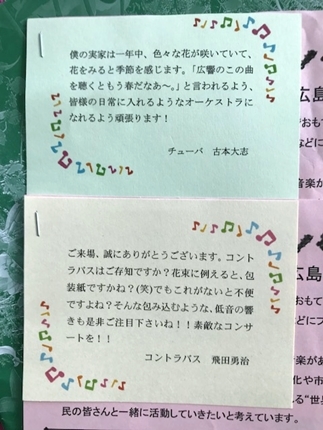 僕の実家は一年中、色々な花が咲いていて、
花をみると季節を感じます。「広響のこの曲
を聴くともう春だなあ～。」と言われるよう、
皆様の日常に入れるようなオーケストラに
なれるよう頑張ります！
チューバ 古本大志
ご来場、誠にありがとうございます。コント
ラバスはご存知ですか？花束に例えると、包
装紙ですかね？(笑)でもこれがないと不便
ですよね？そんな包み込むような、低音の響
きも是非ご注目下さいね！！素敵なコンサ
ートを！！
コントラバス 飛田勇治
広島
おもて
などに
音楽が
広島
おもて
などにフ
音楽があ
化や市
る“世界
民の皆さんと一緒に活動していきたいと考えています。